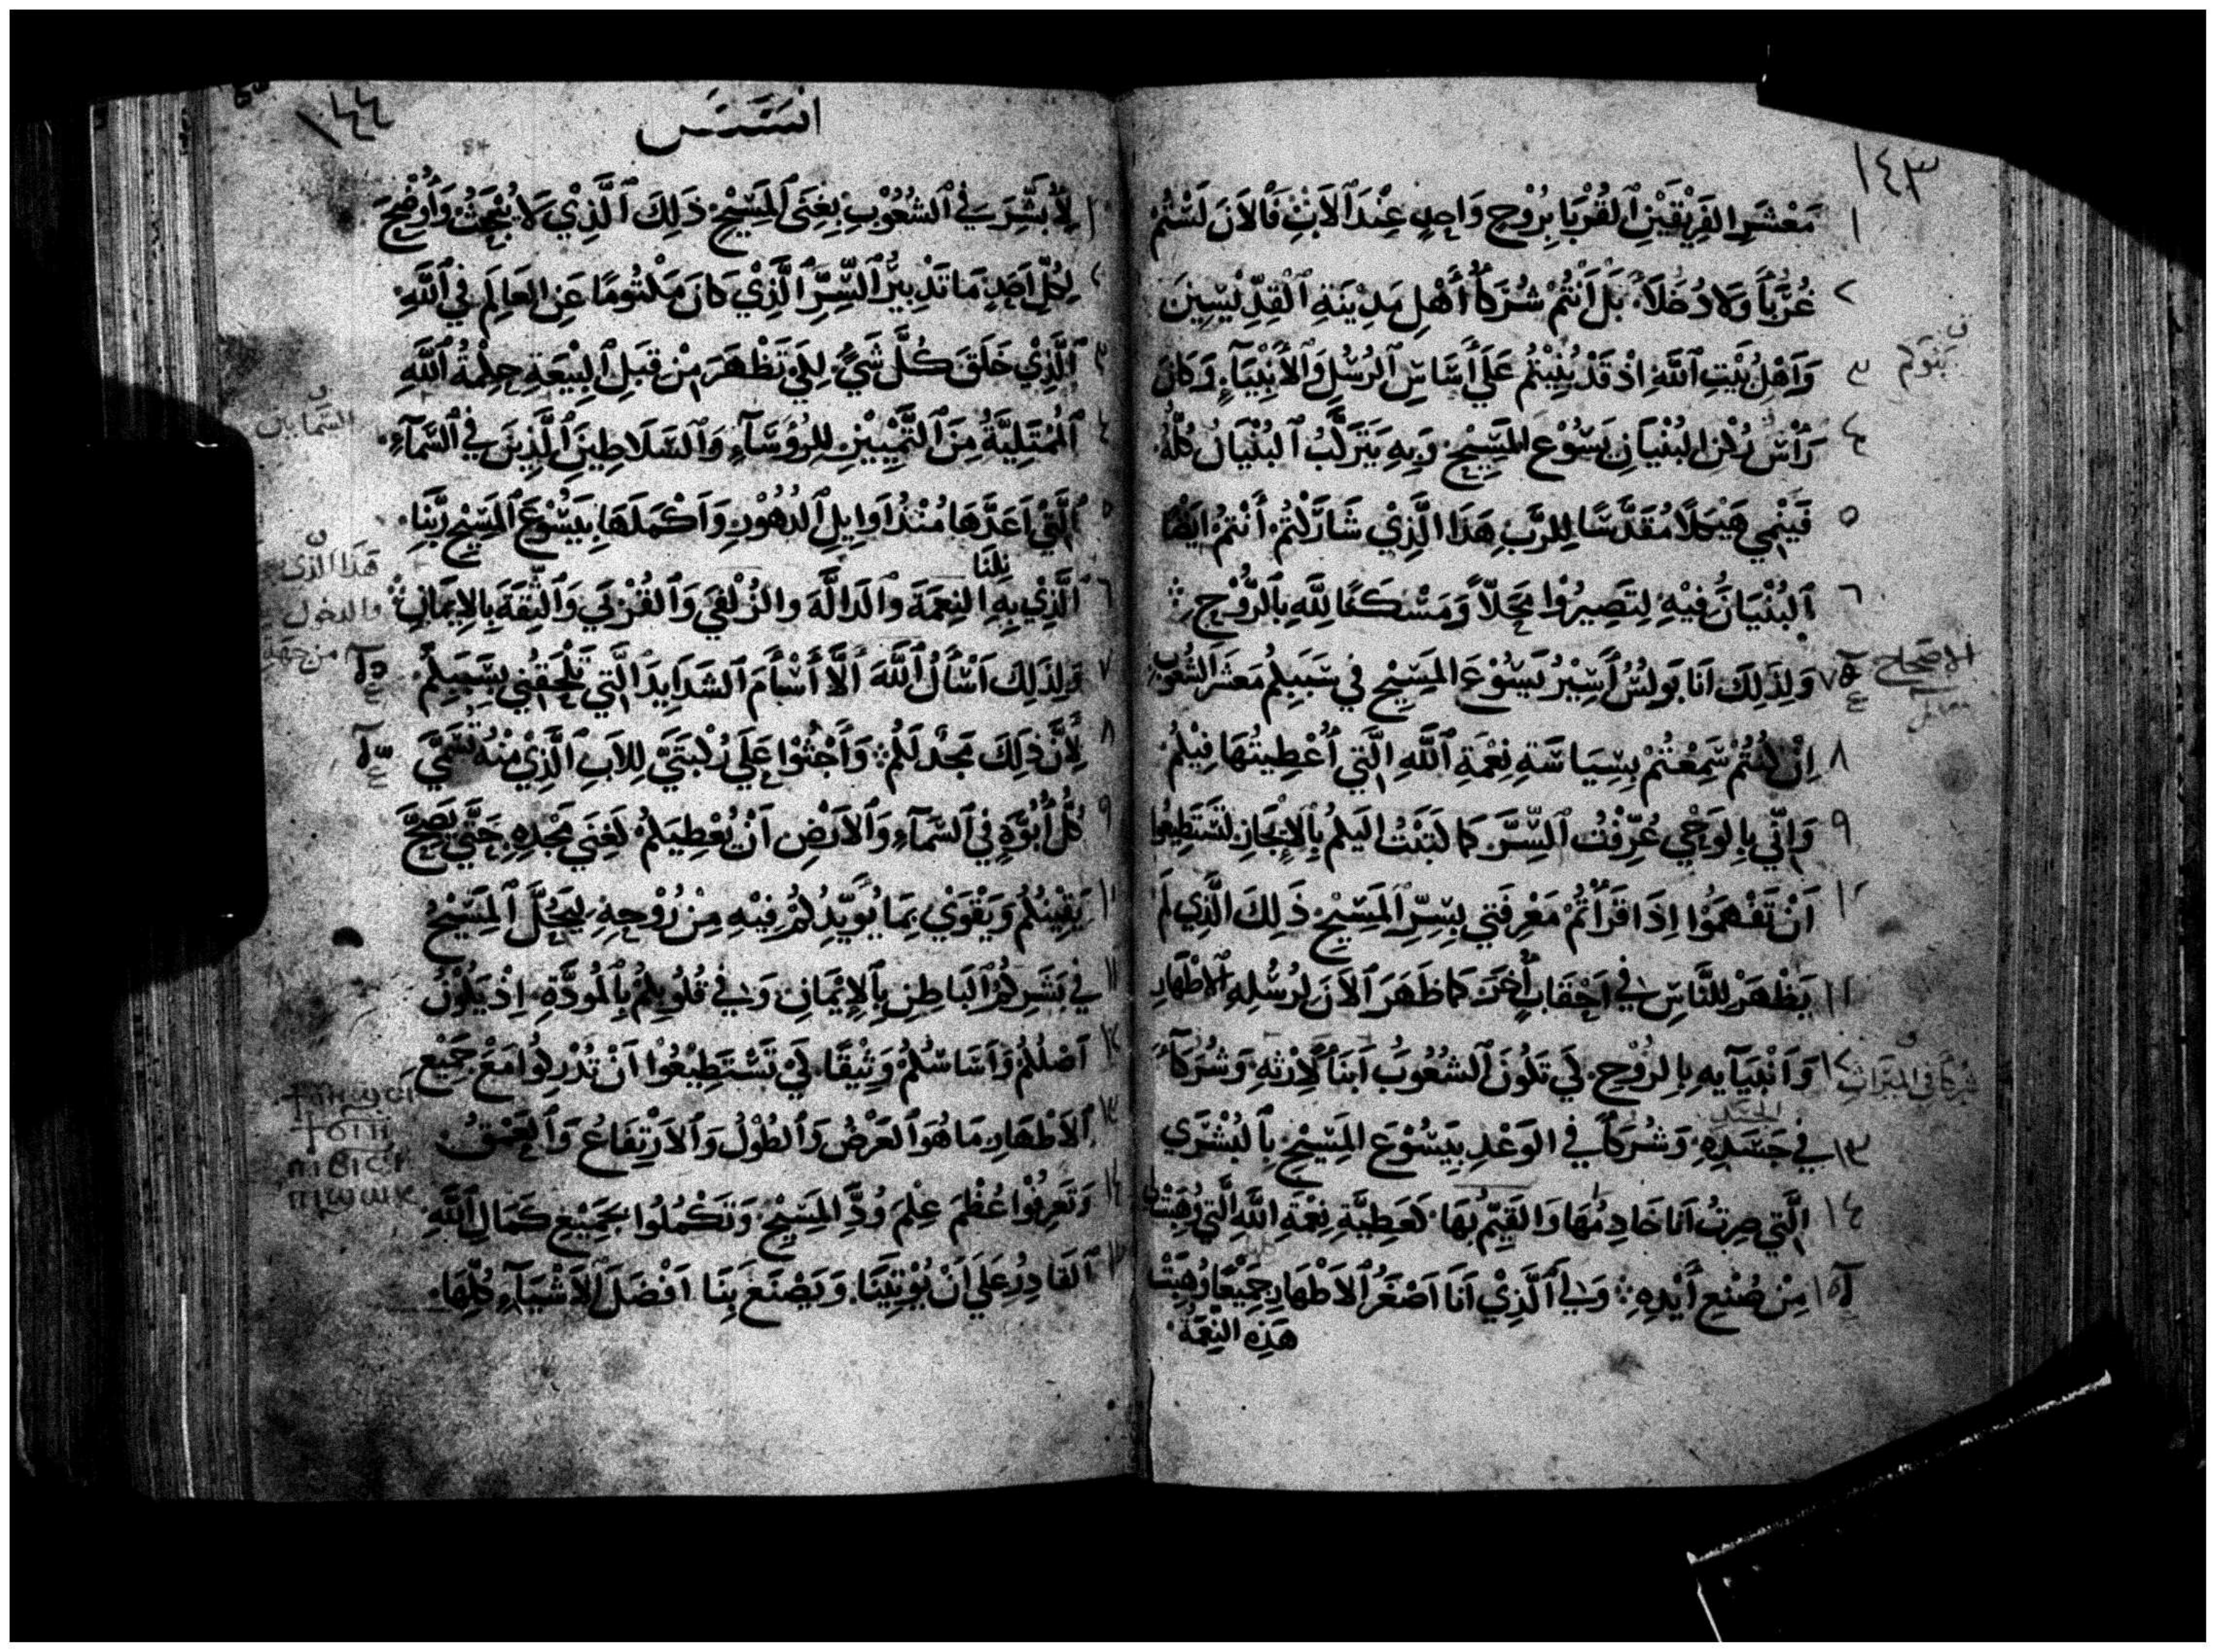 ١٤٣
١ مَعْشَرِ الفَرِيْقَيْنِ ٱلقُرْبَا بِرُوْحٍ وَاحِدٍ عِنْدَ ٱلاَبِ فَالاَنَ لَسْتُمْ
٢ غُرَبَاً وَلاَ دُخَلاَءً بَلْ أَنْتُمْ شُرَكَاُ أَهْلِ مَدِيْنَةِ ٱلْقِدِّيْسِيْنَ
٣ وَاَهْلُ بَيْتِ ٱللَّهِ اِذْ قَدْ بُنِيْتُمْ عَلَي أَسَاسِ ٱلرُسُلِ وَٱلأَنْبِيَآءِ وَكَانَ
بنوكم
٤ رَأْسَ رُكْنِ البُنْيَانِ يَسُوْع المَسِيْحِ وَبِهِ يَتَرَكَّبُ ٱلبُنْيَانُ كُلُّهُ
٥ فَيَنْمِي هَيْكَلاً مُقَدَّسًا لِلرَّبِ هَذَا الَّذِيْ شَارَكْتُمْ أَنْتُمْ اَيْضًا
٦ ٱلبُنْيَانَ فِيْهِ لِتَصِيرُوْا مَحَلّاً وَمَسْكَنًا لِلَّهِ بِٱلرُّوْحِ
الاصحاح
٧ وَلِذَلِكَ اَنَا بَولُسُ أَسِيْرُ يَسُوْعَ المَسِيْحِ فِي سَبَبِكُم مَعشَرَ الشُعُوْبِ
٨ اِنْ كُنْتُمْ سَمِعْتُمْ بِسِيَاسَةِ نِعْمَةِ ٱللَّهِ الَّتِي أُعْطِيتُهَا فِيْكُمْ
٩ وَاِنِّي بِالوَحْيِ عُرِّفْتُ ٱلسِّرَّ كَمَا كَتَبْتُ اِلَيكُمْ بِٱلاِيْجَازِ لتَسْتَطِيعُوا
١٠ اَنْ تَفْهَمُوْا اِذَا قَرَاْتُمْ مَعْرِفَتِي بِسِرِّ ٱلمَسِيْحِ ذَلِكَ الَّذِي لَمْ
١١ يَظْهَرْ لِلنَّاسِ فِي اَحْقَابٍ أُخَرَ كَمَا ظَهَرَ ٱلاَنَ لِرُسُلِهِ ٱلاَطْهَارِ
١٢ وَاَنْبِيَآيِهِ بِالرُوْحِ لِكَي تَكُونَ ٱلشُعُوبُ اَبنَآ لِاِرْثِهِ وَشُرَكَآءَ
شركا في الميراث
١٣ فِي جَسَدِهِ وَشُرَكَآ فِي الوَعْدِ بِيَسُوْعَ المَسِيْحِ بِٱلبُشْرَي
١٤ الَّتِي صِرتُ اَنَا خَادِمُهَا وَالقَيِّمُ بِهَا كَعَطِيَّةِ نِعْمَةِ اللَّهِ الَّتِي وُهِبَتْ لِي
١٥ مِنْ صُنْعِ أَيْدِهِ وَلِي ٱلَّذِيْ اَنَا اَصْغَرُ ٱلاَطْهَارِ جَمِيْعًا وُهِبَتْ
هَذِهِ النِعْمَةُ
١٤٤
افسَسَ
١ لِأُبَشِّرَ فِي ٱلشُعُوْبِ بِغِنَي ٱلمَسِيْحِ ذَلِكَ ٱلَّذِيْ لاَ يُبْحَثُ وَأُوْضِحَ
٢ لِكُلِّ اَحَدٍ مَا تَدْبِيْرُ ٱلسِّرِّ ٱلَّذِيْ كَانَ مَكْتُومًا عَنِ العَالِمِ فِي ٱللَّهِ
٣ ٱلَّذِيْ خَلَقَ كُلَّ شَيٍ لِكَي تَظْهَرَ مِنْ قِبَلِ ٱلبِيْعَةِ حِكْمَةُ ٱللَّهِ
٤ ٱلمُمْتَلِيَّةُ مِنَ ٱلتَّمْيِيْزِ لِلرُؤَسَآءِ وَٱلسَلاَطِينِ ٱلَّذِينَ فِي ٱلسَّمَآءِ
السمايين
٥ ٱلَّتِيْ اَعَدَّهَا مُنْذُ اَوَايِلِ ٱلدُهُوْرِ وَاَكْمَلَهَا بِيَسُوْعَ ٱلمَسِيْحِ رَبِّنَا
هذا الذى
نِلنَا
٦ ٱلَّذِيْ بِهِ النِعمَةَ وَالَدالَّةَ والزُلْفَي وَٱلقُرْبَي وَٱلثِقَةَ بِالاِيمَانِ
والدخول
من جهة
٧ وَلِذَلِكَ اَسْأَلُ ٱللَّهَ أَلَّا أَسْأَمَ ٱلشَدَايِدَ الَّتِي تَلْحَقُنِي بِسَبَبِكُم
٨ لِأَنَّ ذَلِكَ مَجْدٌ لَكُمْ وَأَجْثُوْا عَلَي رُكْبَتَيَّ لِلاَبِ ٱلَّذِيْ مِنْهُ تُسَمَّي
٩ كُلُّ أُبُوَّةٍ فِي ٱلسَّمَآءِ وَٱلاَرْضِ اَنْ يُعْطِيَكُمْ كَغِنَي مَجْدِهِ حَتَّي يَصِحَّ
١٠ يَقِيْنُكُمْ وَيَقْوَيْ بِمَا يُوَيِّدُكُمْ فِيْهِ مِنْ رُوْحِهِ لِيَحُلَّ ٱلمَسِيْحُ
١١ فِي بَشَرِكُمُ ٱلبَاطِنِ بِٱلاِيْمَانِ وَفِي قُلُوبِكُمْ بِٱلمَوَدَّةِ اِذْ يَكُوْنُ
١٢ اَصْلُكُمْ وَاَسَاسُكُمْ وَثِيْقًا لِكَيْ تَسْتَطِيْعُوْا اَنْ تُدْرِكُوا مَعَ جَمِيْعِ
١٣ ٱلاَطْهَارِ مَا هُوَ ٱلعَرْضُ وَٱلطُوْلُ وَٱلاَرتِفَاعُ وَٱلعُمْقُ
ⲡⲓϭⲓⲥⲓ
ⲡⲓϣⲱⲕ
١٤ وَتَعرِفُوْا عُظْمَ عِلْمِ وُدِّ المَسِيْحِ وَتَكْمُلُوْا بجَمِيْعِ كَمَالِ ٱللَّهِ
ٱلقَادِرُ عَلَي اَنْ يُوْتِيَنَا وَيَصْنَعَ بِنَا اَفْضَلَ ٱلاَشْيَآءِ كُلِّهَا